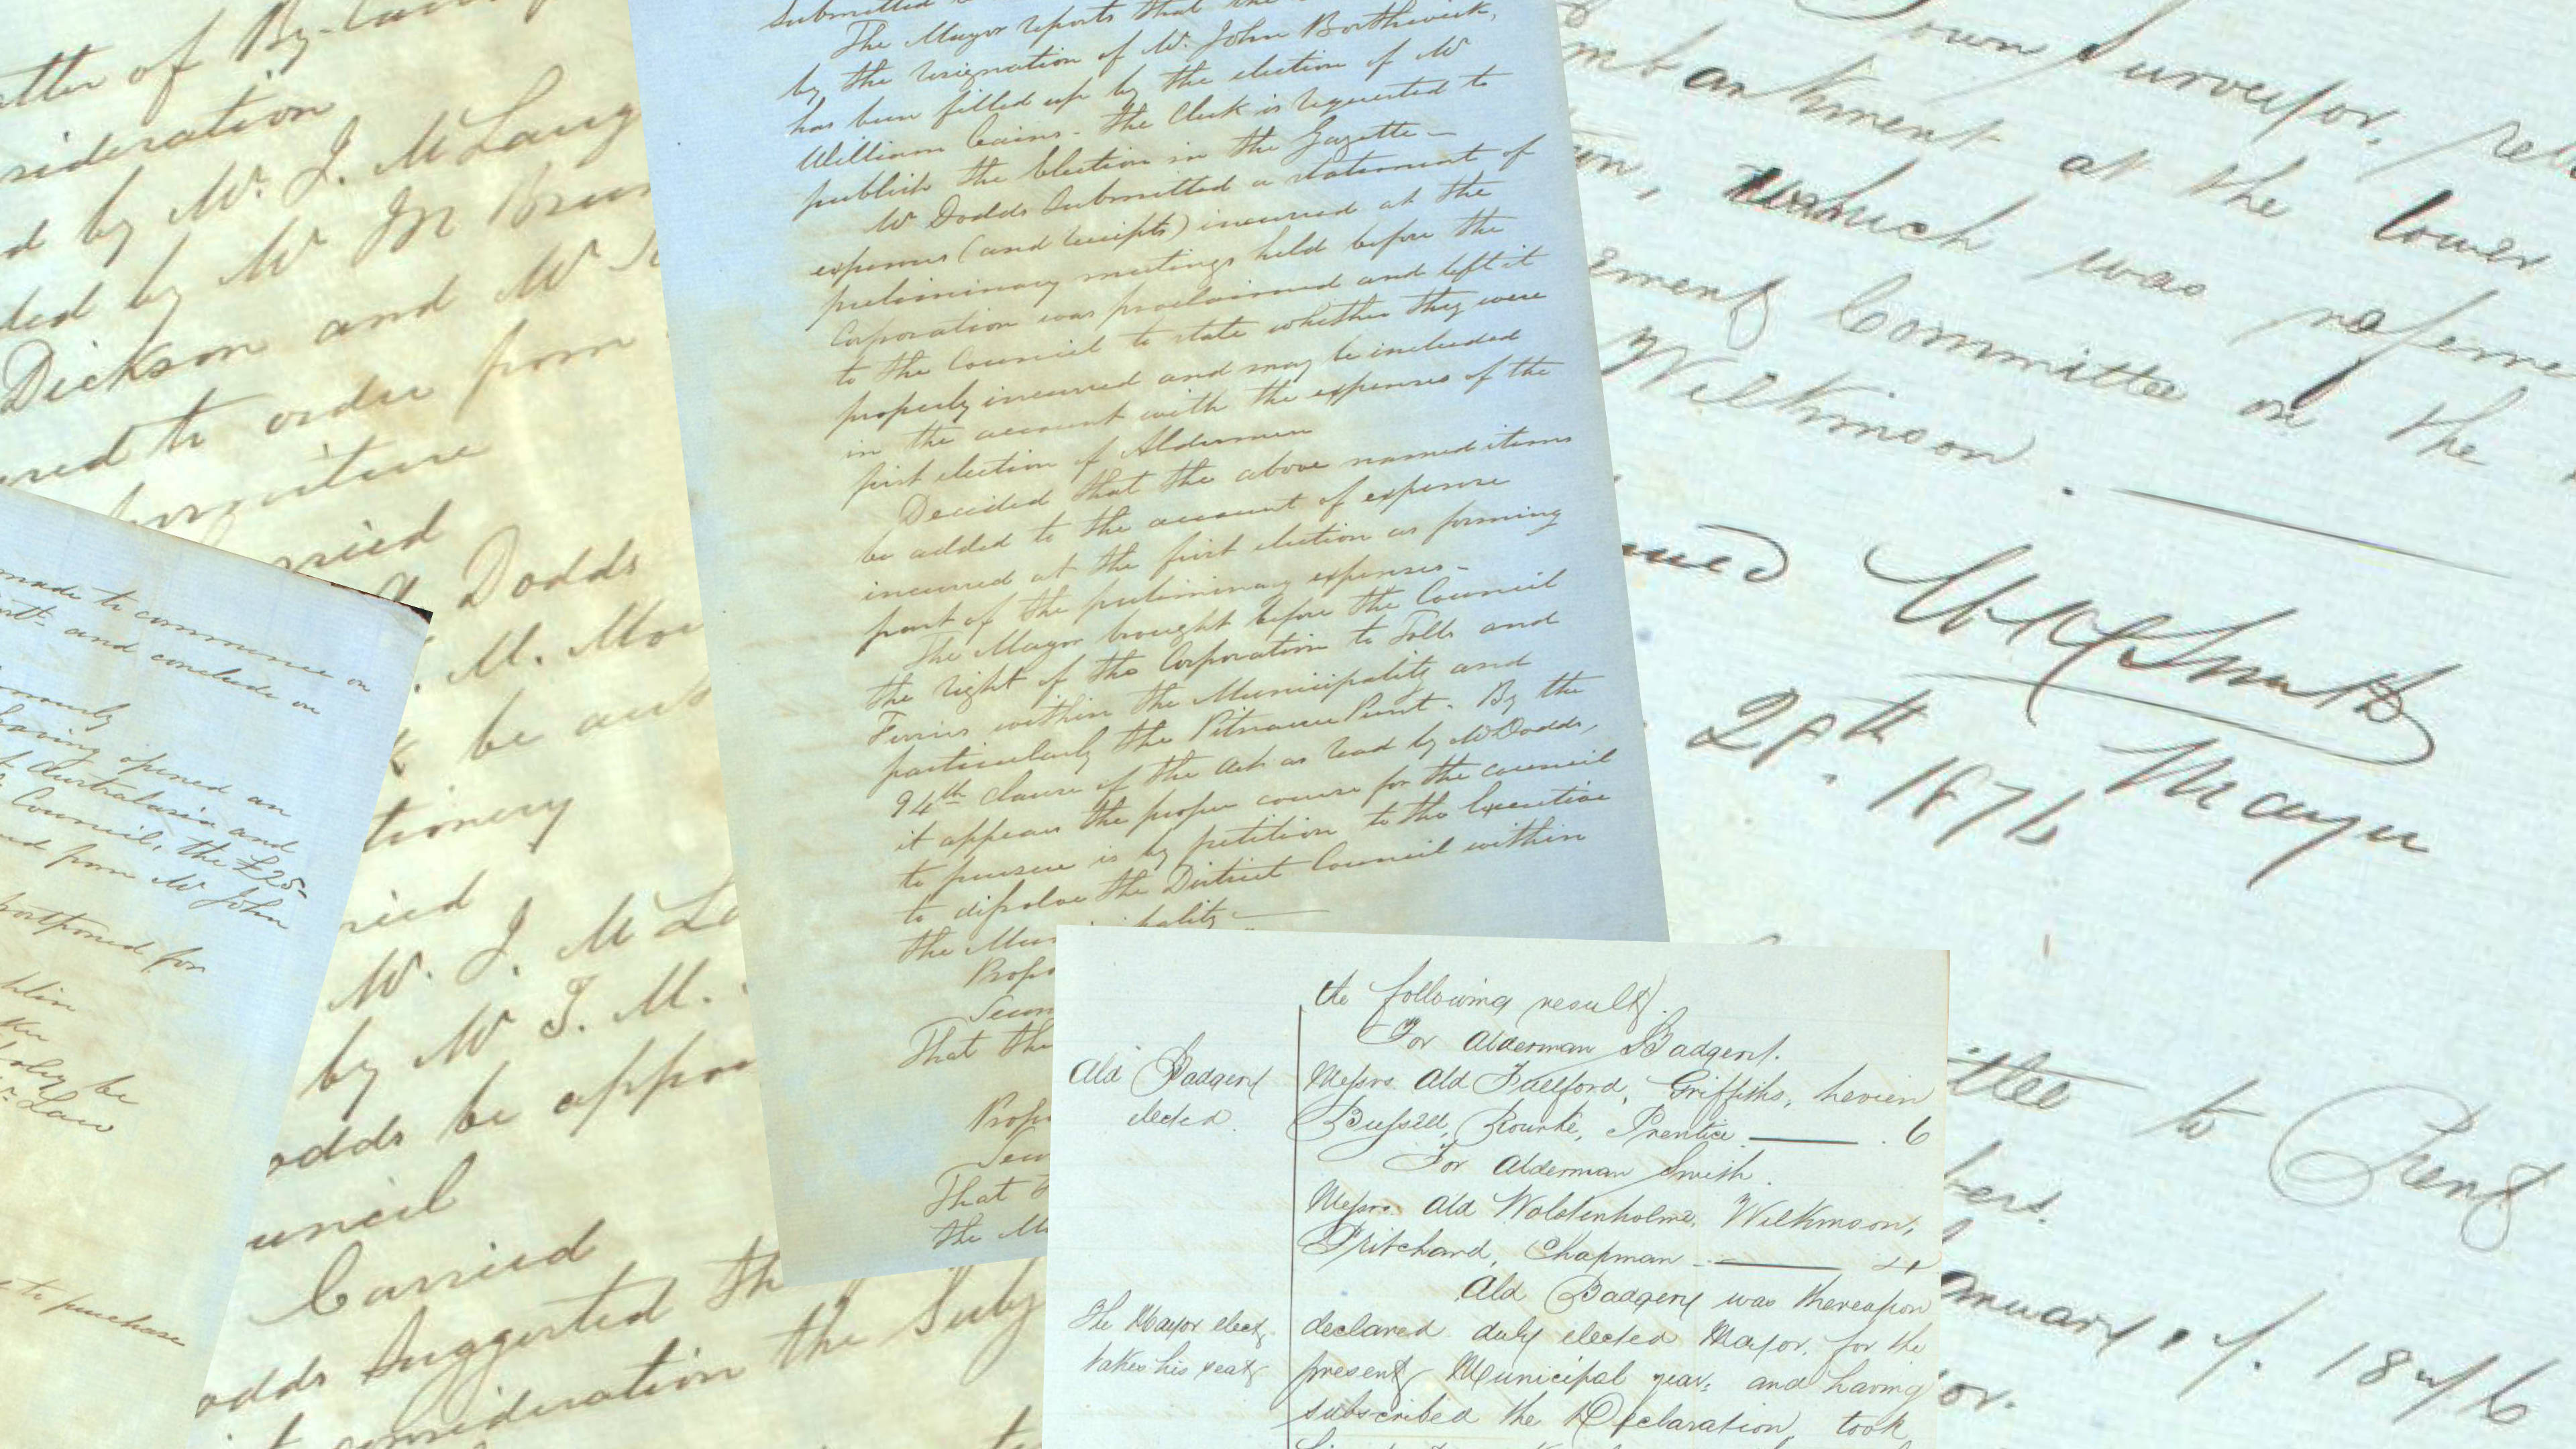 of By-law
sideration
d by Mr. J. McLaug
ded by Mr Jn
Dickson and Mr
red to order from
rried
Dodds
M. Mo
be au
tionery
ried
Mr. J. McL
by Mr T. M.
odds be appo
uncil
Carried
odds suggested th
consideration the Subj
made to commence on
and conclude on
having opened an
Australasia and
Council, the £25-
from Mr John
postponed for
be
Law
to purchase
Submitted
The Mayor reports that the
by the resignation of Mr. John Borthwick,
has been filled up by the election of Mr
William Cains - The Clerk is requested to
publish the Election in the Gazette -
Mr Dodds Submitted a statement of
expenses (and receipts) incurred at the
preliminary meetings held before the
Corporation was proclaimed and left it
to the Council to state whether they were
properly incurred and may be included
in the account with the expenses of the
first election of Aldermen
Decided that the above named items
be added to the account of expense
incurred at the first election as forming
part of the preliminary expenses -
The Mayor brought before the Council
the right of the Corporation to Tolls and
Ferries within the Municipality and
particularly the Pitnacree Punt - By the
94th clause of the Act as read by Mr Dodds,
it appears the proper course for the council
to pursue is by petition to the Executive
to dissolve the District Council within
the Mun ipality -
Propo
Secon
That the
Propo
Secon
That
the M
Town Surveyor, rel
mbankment at the lower
which was referre
ement Committee on the
Wilkinson.
Smith
Mayor
1876
ittee to
bers.
anuary, 1876
or.
the following result.
For Alderman Badgery.
Ald Badgery
elected.
Messrs. Ald Fullford, Griffiths,
Russell, Rourke, Prentice - 6
For Alderman Smith.
Messrs. Ald Wolstenholme, Wilkinson,
Pritchard, Chapman - 4
Ald Badgery was thereupon
The Mayor elect
takes his seat
declared duly elected Mayor, for the
present Municipal year, and having
subscribed the Declaration, took